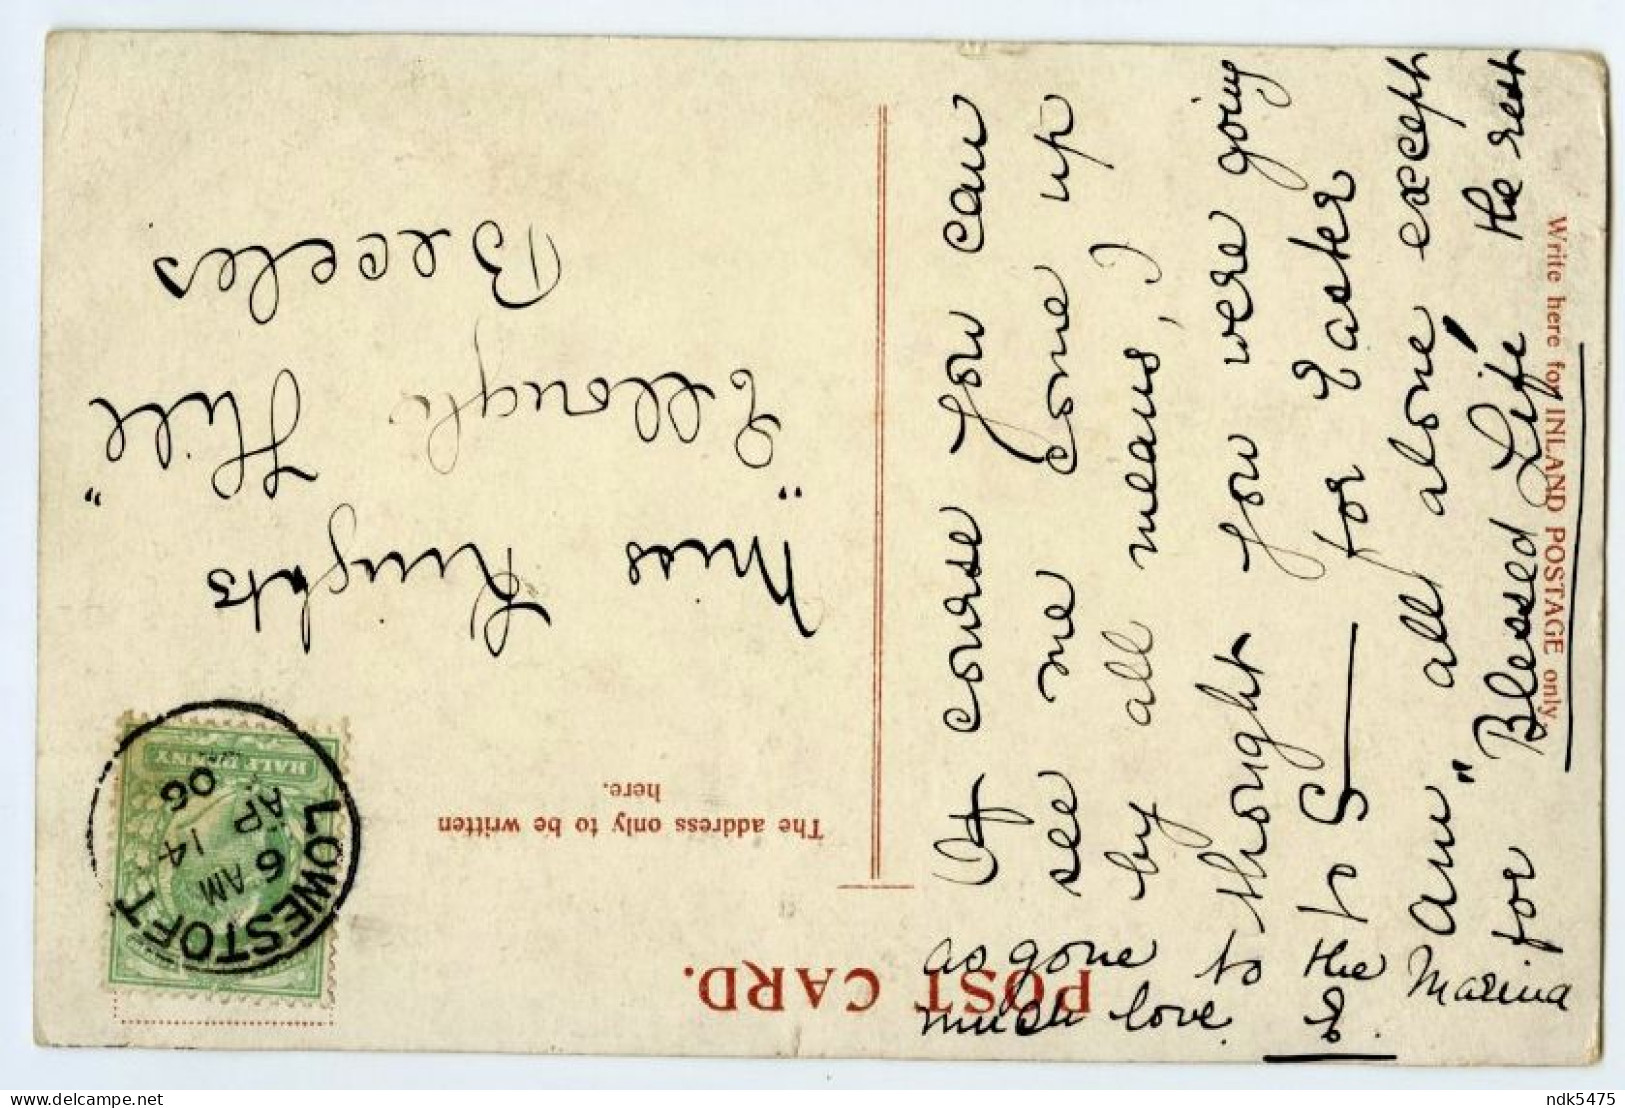 POST CARD.
Write here for INLAND POSTAGE only.
The address only to be written
here.
HALF PENNY
LOWESTOFT
6 AM
14
AP
06
Miss Knights
"Ellough Hill"
Beccles
Of course you can
see me come up
by all means, I
thought you were going
to S— for Easter
am all alone except
for "Blessed Life" the rest
as gone to the Marina
much love. E.
ndk5475